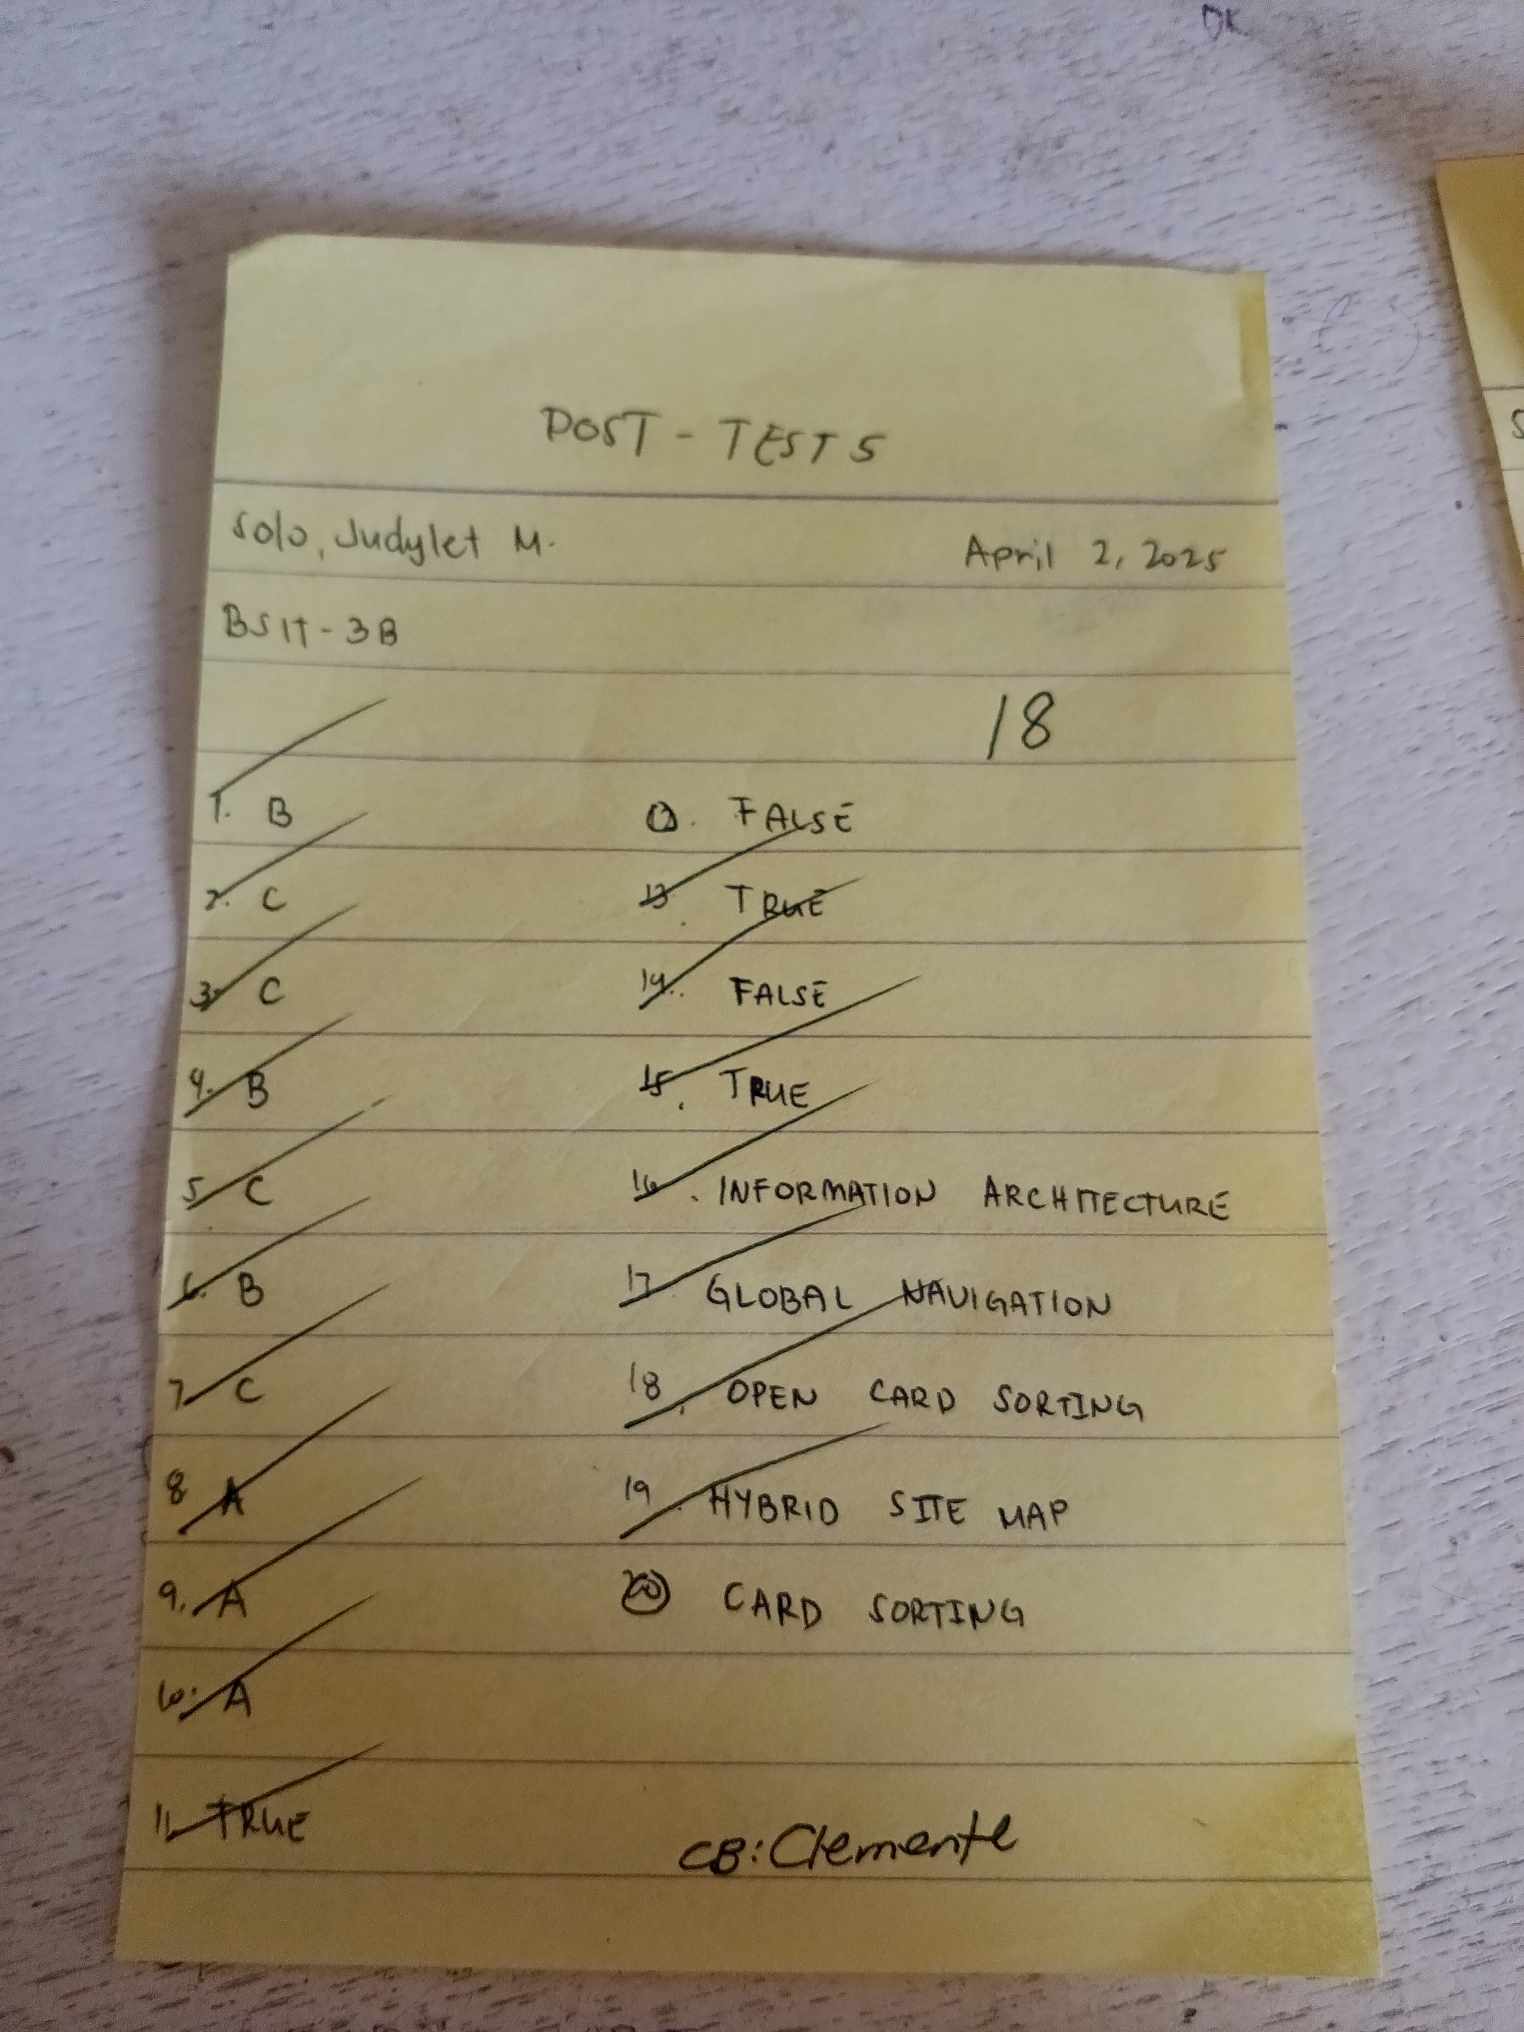 DK
POST - TEST 5
Solo, Judylet M.
April 2, 2025
BSIT - 3B
18
1. B
2. C
3. C
4. B
5. C
6. B
7. C
8 A
9. A
10. A
11. TRUE
12. FALSE
13. TRUE
14. FALSE
15. TRUE
16. INFORMATION ARCHITECTURE
17. GLOBAL NAVIGATION
18. OPEN CARD SORTING
19. HYBRID SITE MAP
20 CARD SORTING
CB: Clemente
S